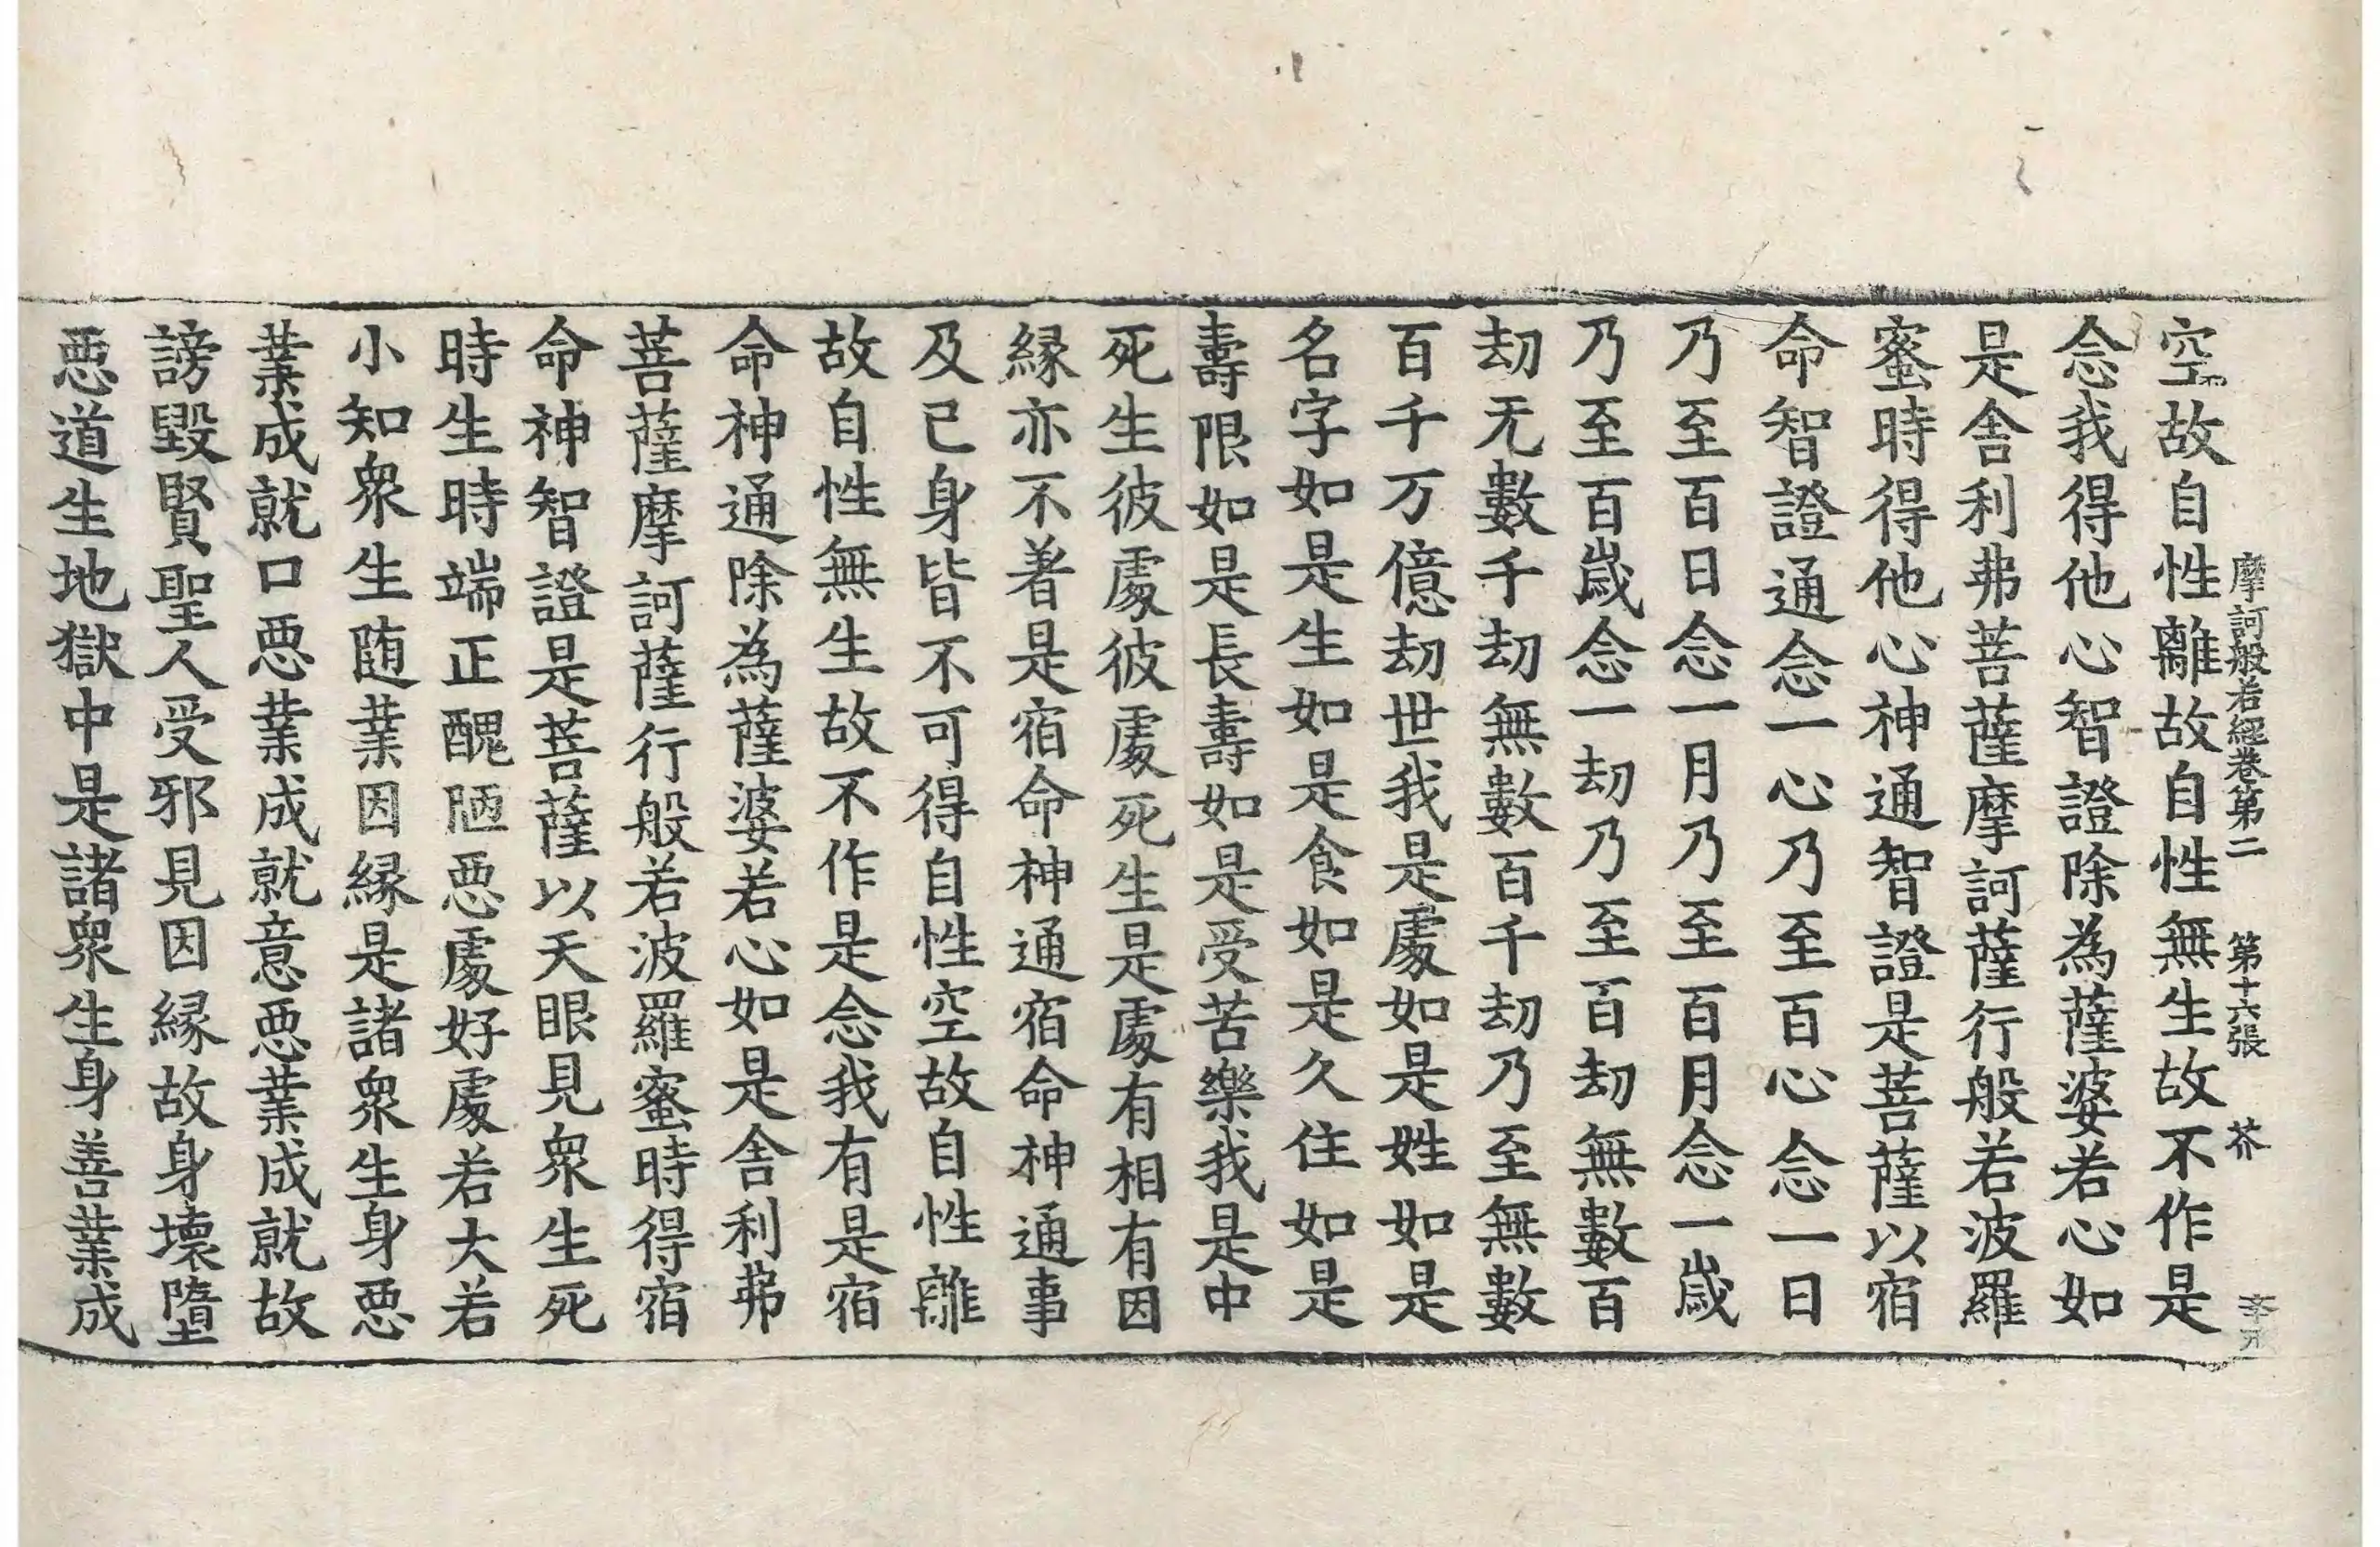 摩訶般若經卷第二 第十六張 芥
空故自性離故自性無生故不作是
念我得他心智證除為薩婆若心如
是舍利弗菩薩摩訶薩行般若波羅
蜜時得他心神通智證是菩薩以宿
命智證通念一心乃至百心念一日
乃至百日念一月乃至百月念一歲
乃至百歲念一劫乃至百劫無數百
劫无數千劫無數百千劫乃至無數
百千万億劫世我是處如是姓如是
名字如是生如是食如是久住如是
壽限如是長壽如是受苦樂我是中
死生彼處彼處死生是處有相有因
緣亦不著是宿命神通宿命神通事
及已身皆不可得自性空故自性離
故自性無生故不作是念我有是宿
命神通除為薩婆若心如是舍利弗
菩薩摩訶薩行般若波羅蜜時得宿
命神智證是菩薩以天眼見衆生死
時生時端正醜陋惡處好處若大若
小知衆生随業因緣是諸衆生身惡
業成就口惡業成就意惡業成就故
謗毀賢聖人受邪見因緣故身壞墮
惡道生地獄中是諸衆生身善業成